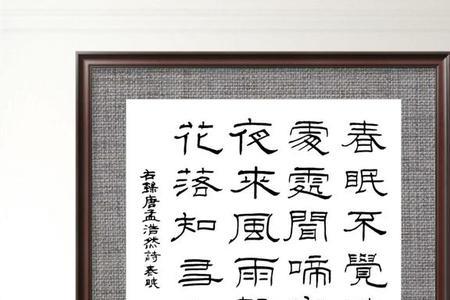 春眠不覺
處處聞啼
夜來風雨
花落知多
右錄唐孟浩然詩春曉